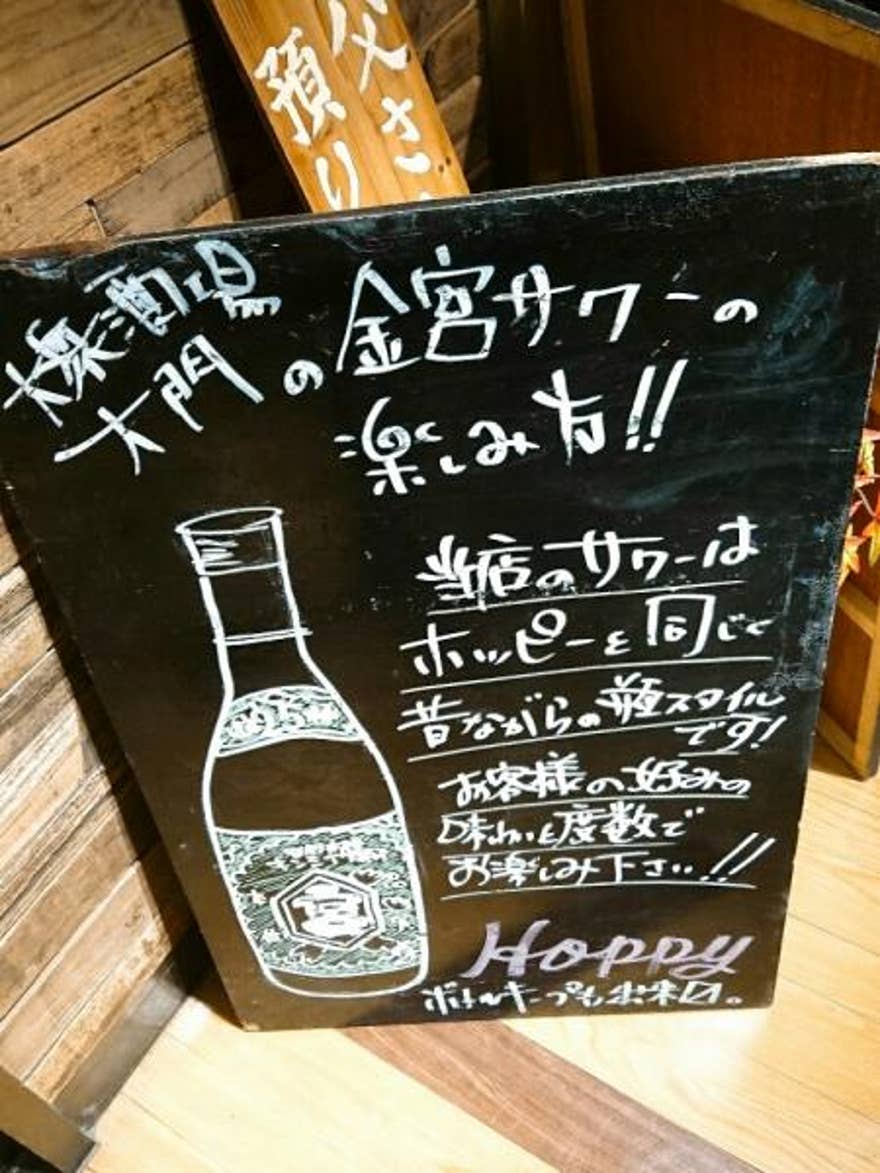 父さ
預り
酒場
大門
の金宮サワーの
楽しみ方!!
当店のサワーは
ホッピーと同じく
昔ながらの瓶スタイル
です!
お客様の好みの
味わいと度数で
お楽しみ下さい!!
宮
Hoppy
ボトルキープも出来〼。